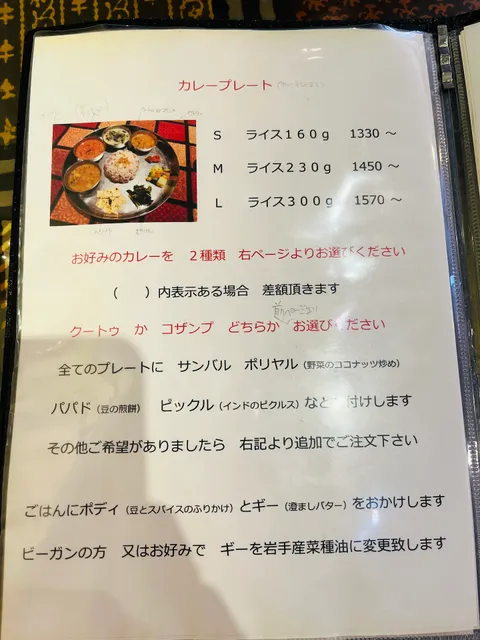 カレープレート
S　ライス160g　1330 ～
M　ライス230g　1450 ～
L　ライス300g　1570 ～
お好みのカレーを　2種類　右ページよりお選びください
（　　）内表示ある場合　差額頂きます
クートゥ　か　コザンブ　どちらか　お選びください
全てのプレートに　サンバル　ポリヤル（野菜のココナッツ炒め）
パパド（豆の煎餅）　ピックル（インドのピクルス）など　付けします
その他ご希望がありましたら　右記より追加でご注文下さい
ごはんにポディ（豆とスパイスのふりかけ）とギー（澄ましバター）をおかけします
ビーガンの方　又はお好みで　ギーを岩手産菜種油に変更致します